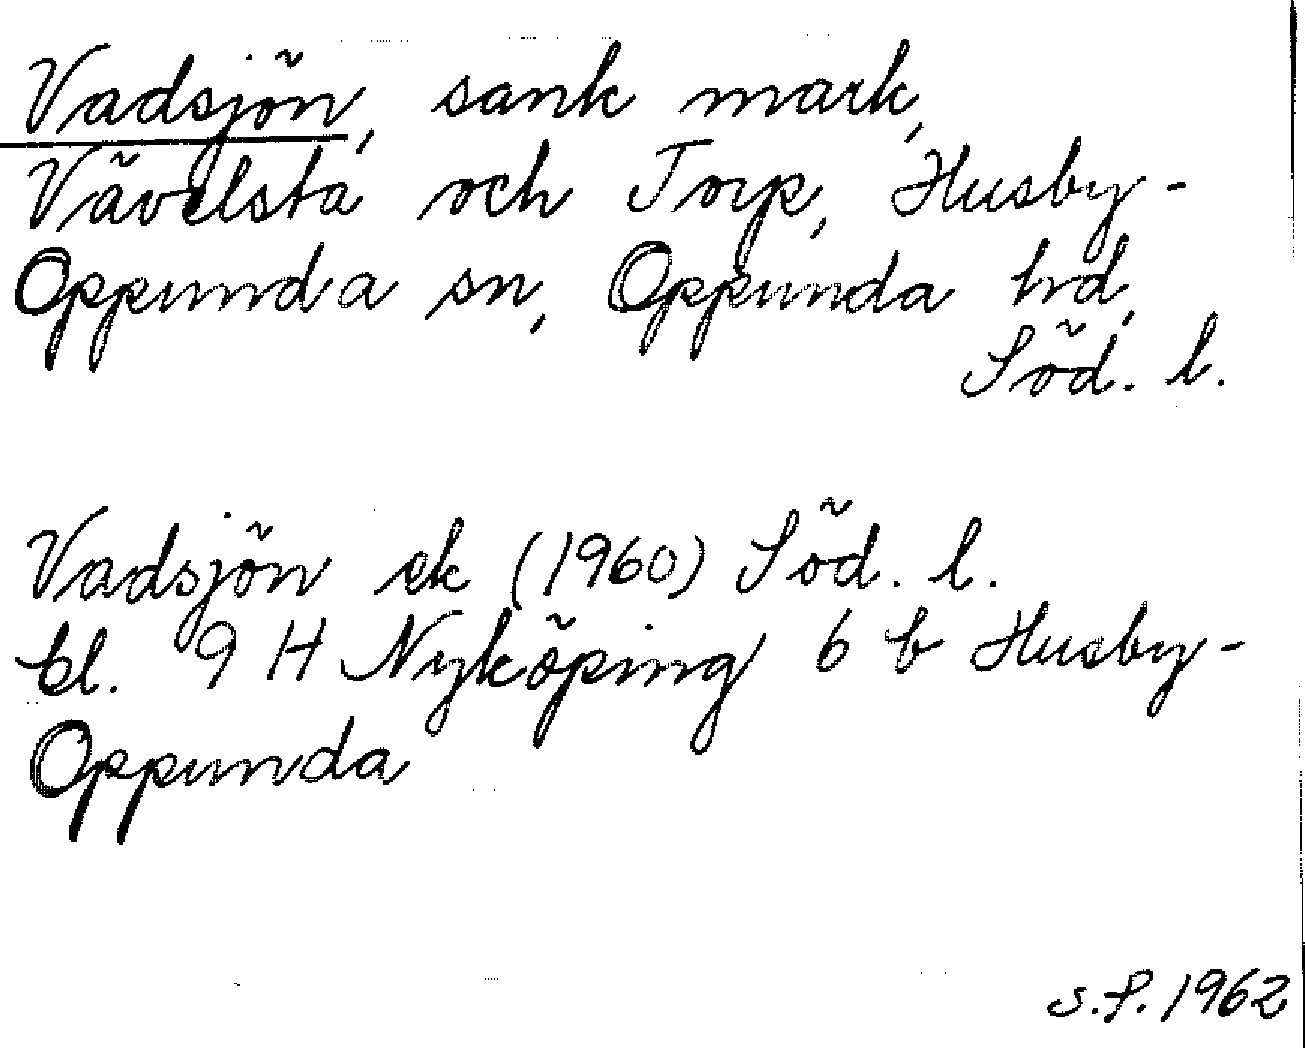 Vadsjön, sank mark,
Vävelsta och Torp, Husby-
Oppunda sn, Oppunda hd,
Söd. l.
Vadsjön ek (1960) Söd. l.
bl. 9 H Nyköping 6 b Husby-
Oppunda
S.S. 1962